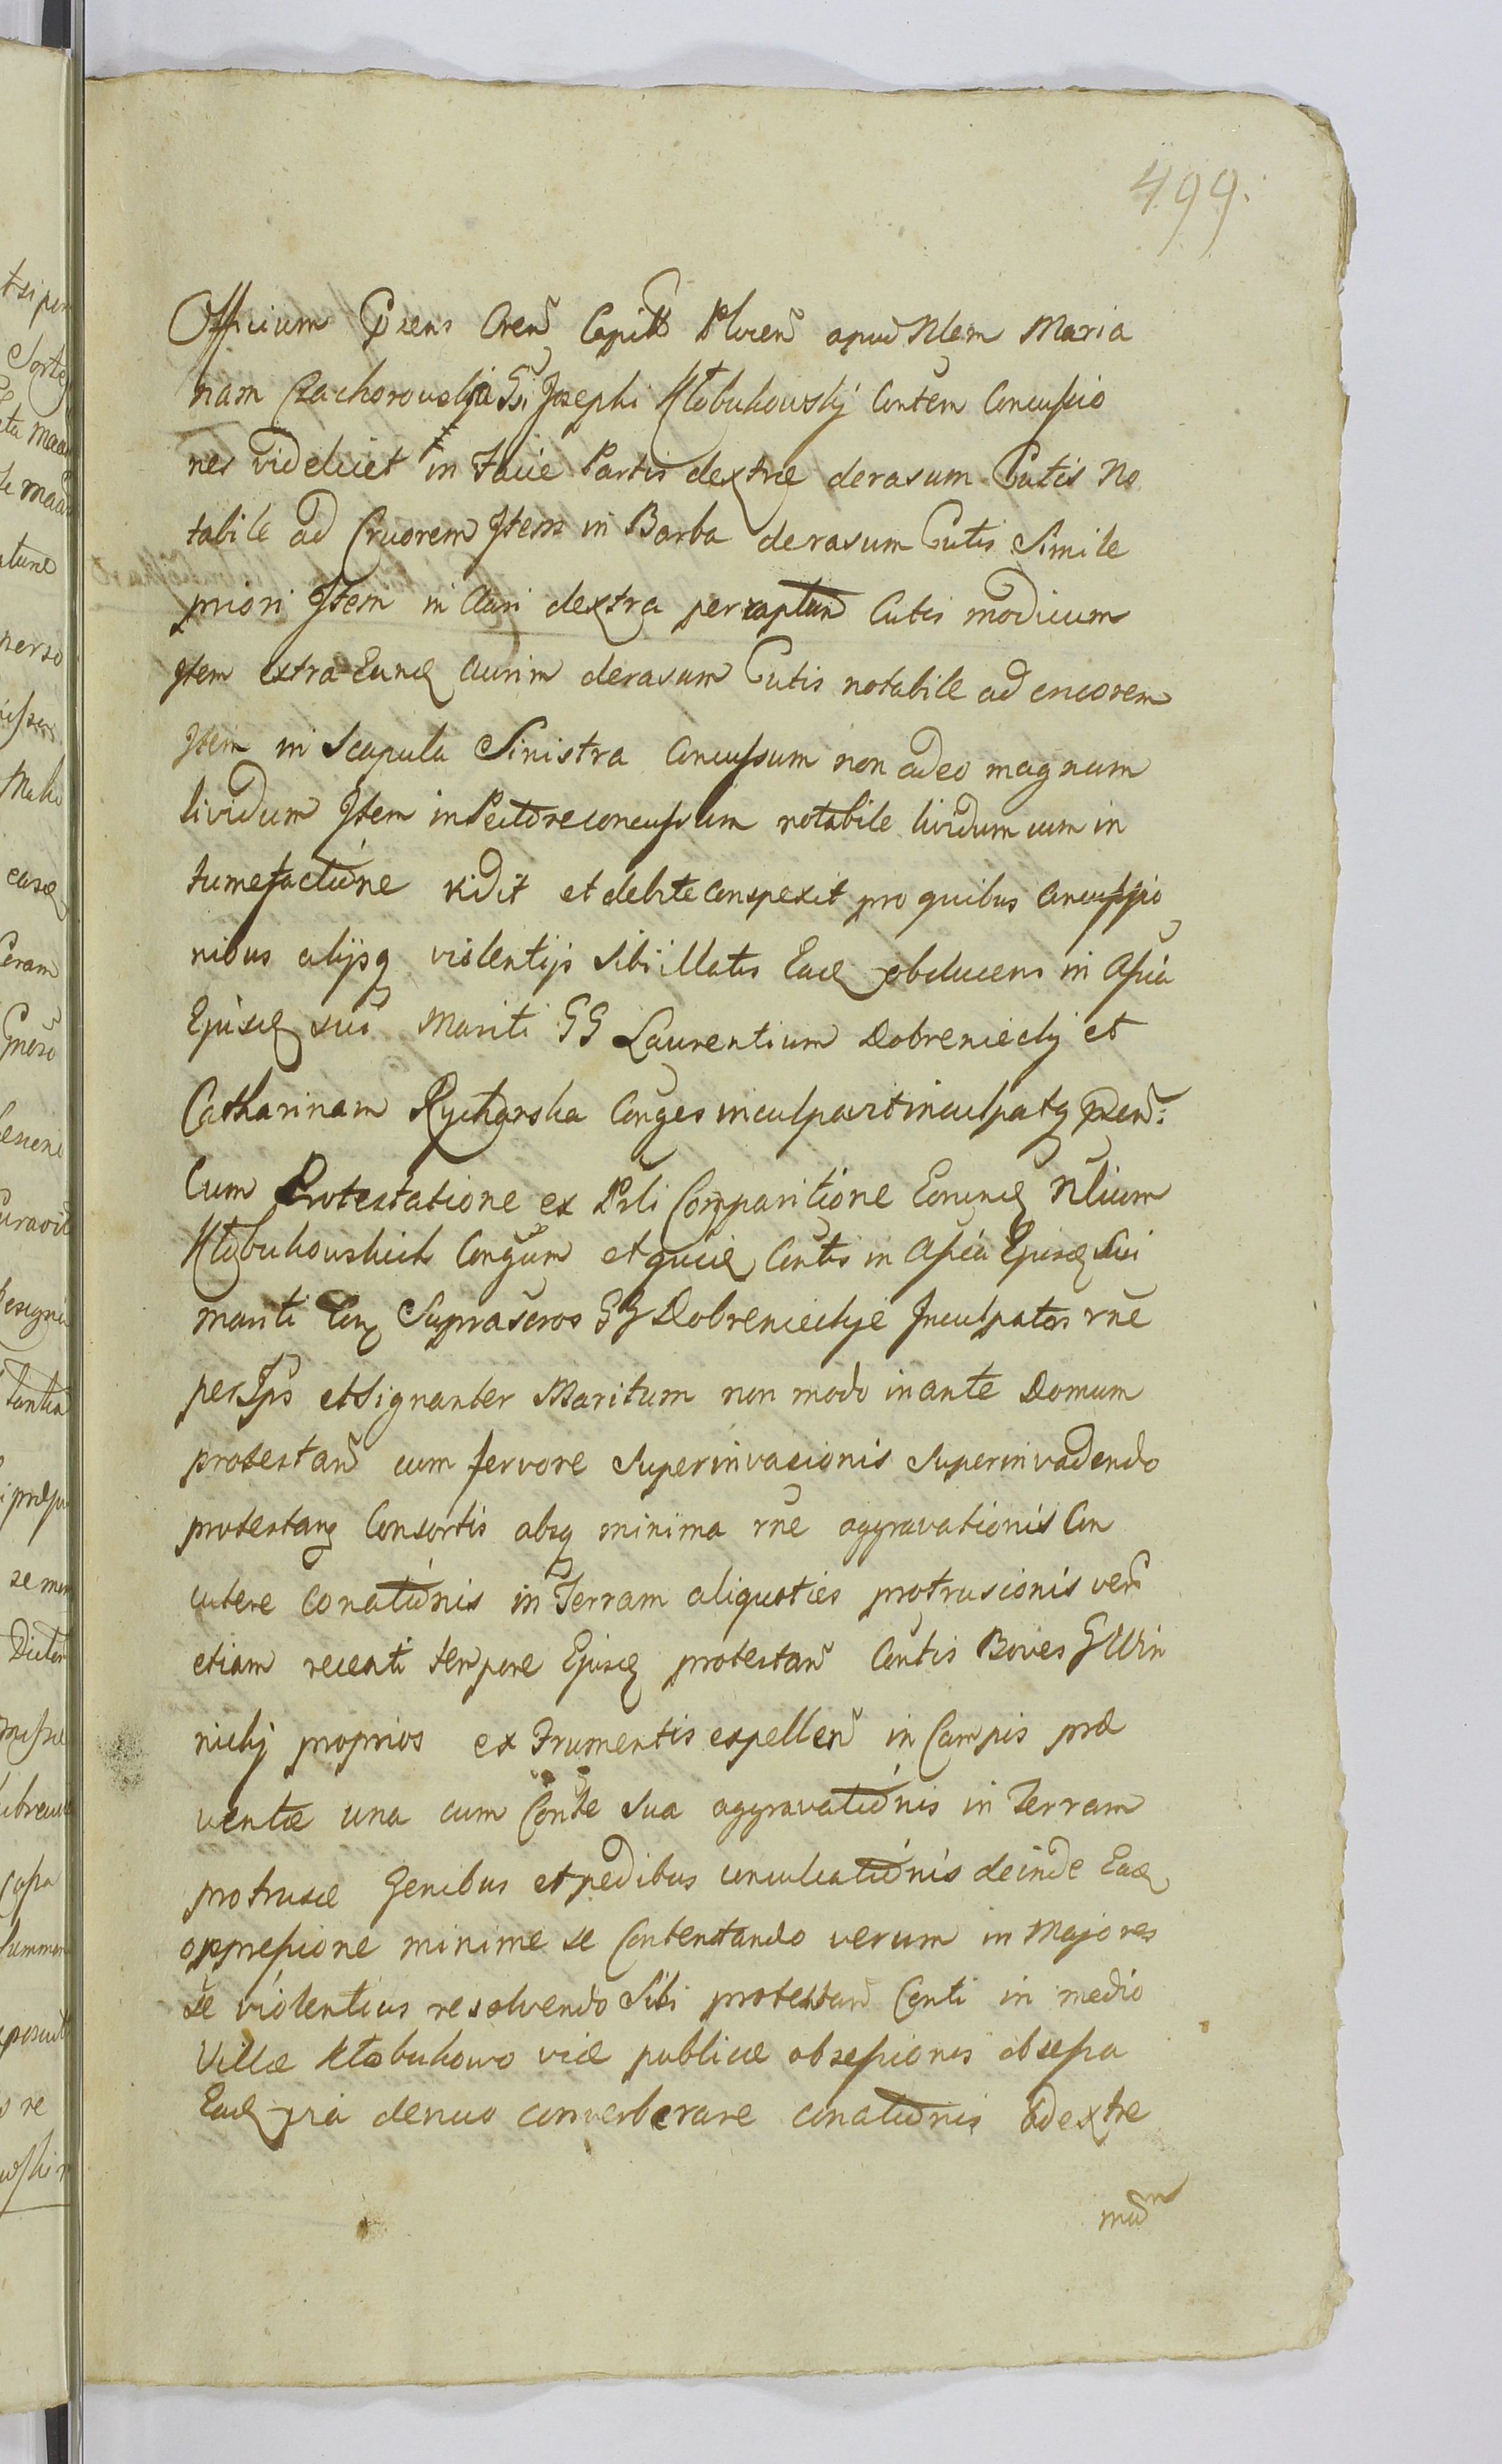 499.
Officium Præsens Cren̄ Capitt Plocen̄ apud Nlem Maria
nam Czachorowska Gsi Josephi Kłobukowskÿ Contem Concussio
nes videlicet in Facie Partis dextræ derasum Cutis No
tabile ad Cruorem Item in Barba derasum Cutis Simile
priori Item in Auri dextra Cutis modicum
Item extra Eandẽ Aurim derasum Cutis notabile ad cruorem
Item in Scapula Sinistra Concussum non adeo magnum
lividum Item in Pectore concussum notabile lividum cum in
tumefactione vidit et debite conspexit pro quibus Concussio
nibus alijsq violentijs sibi illatis Eadẽ obducens in Assĩa
Ejusdẽ sui Mariti GG Laurentium Dobrenieckÿ et
Catharinam Rycharska Conges inculpavit inculpatq præsen:
Cum Protestatione ex Psli Comparitione Eorundẽ Nlium
Kłobukowskich Congum et quidẽ Contis in Assĩa Ejusdẽ Sui
mariti Con Suprascros GG Dobrenieckje Inculpatos rne
per Ips et Signanter Maritum non modo in ante Domum
protestan̄ cum fervore superinvasionis superinvadendo
protestans Consortis absq minima rne aggravationis Con
cutere conationis in Terram aliquoties protrusionis verũ
etiam recenti tempore Ejusdẽ protestan̄ Contis Boves G Win
nickj proprios ex Frumentis expellen̄ in Campis præ
ventæ una cum Conte sua aggravationis in Terram
protrusæ Genibus et pedibus conculcationis deinde Eadẽ
oppressione minime se Contentando verum in Majores
se violentias resolvendo Sibi protestan̄ Conti in medio
Villæ Kłobukowo viæ publicæ obsessionis obsessa
Eadẽ denuo converberare conationis ad extre
mam